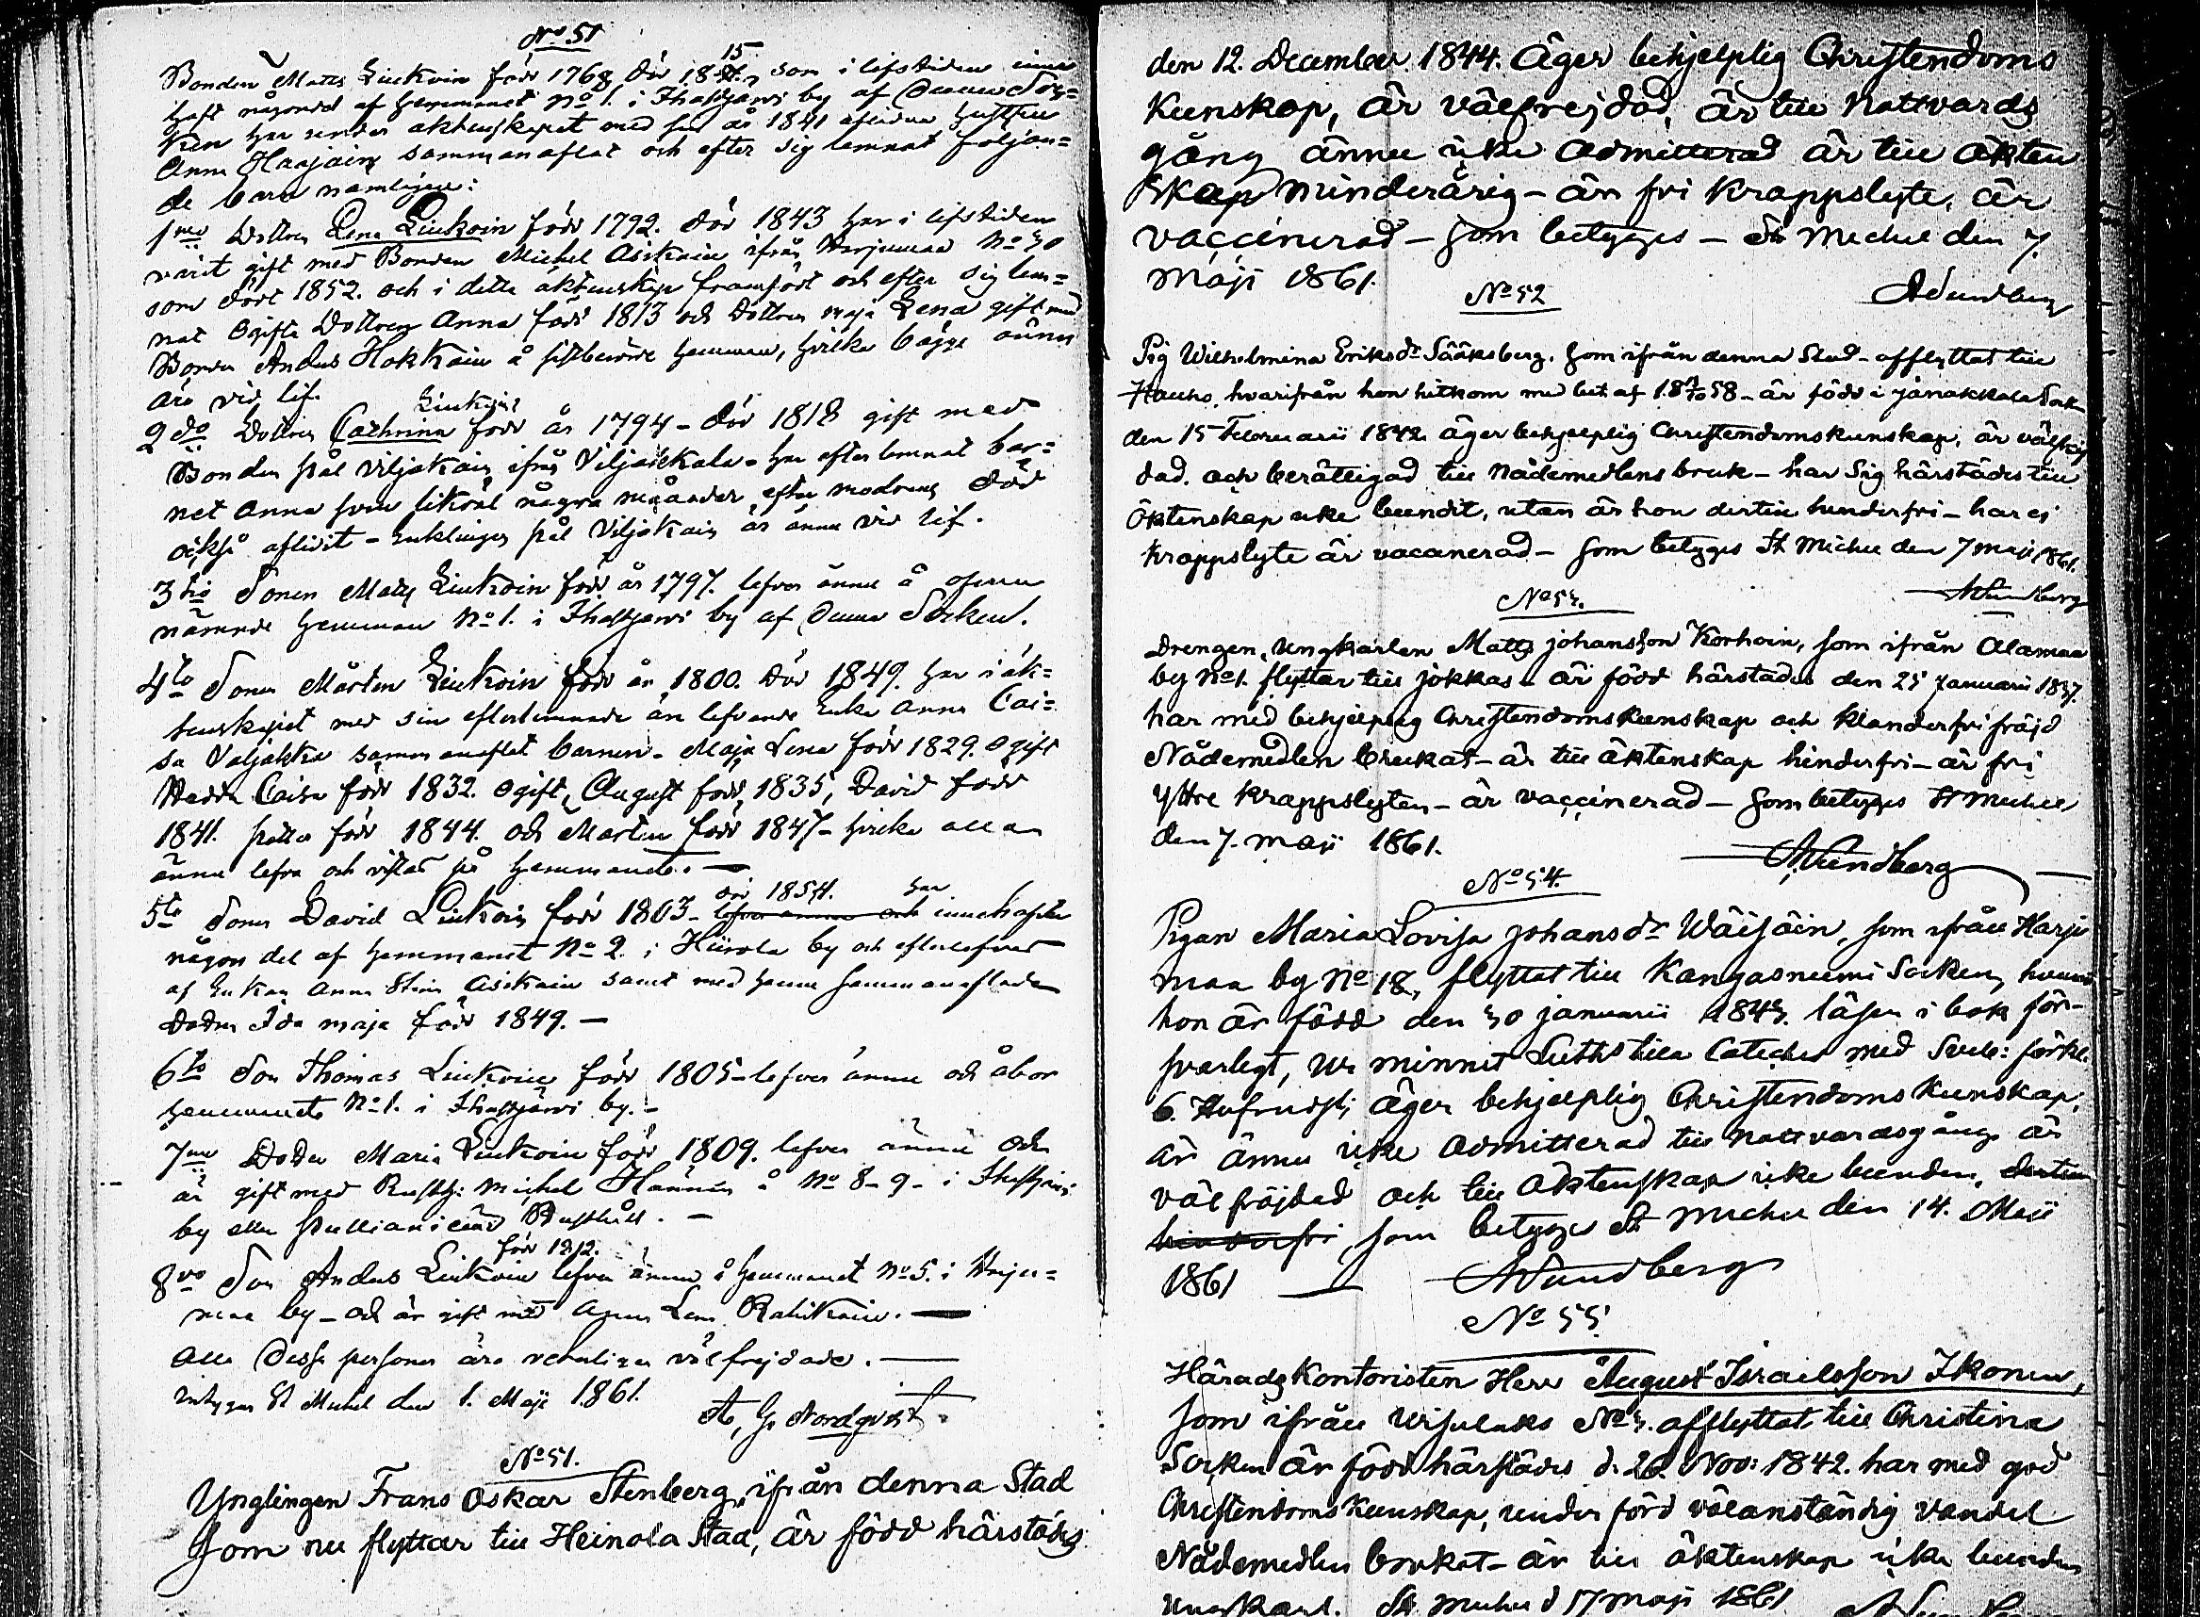 No 51
Bonden Matts Liukoin född 1768, död 1815, som i lifstiden inne
haft någondel af hemmanet No 1. i Ihastjärvi by af denna Soc=
ken har under äktenskapet med sin år 1841 aflidna hustru
Anna Haajain sammanaflat och efter sig lemnat följan=
de barn nämligen:
1mo Dottren Lena Liukoin född 1792. död 1843 har i lifstiden
varit gift med Bonden Michel Asikain ifrån Harjumaa No 30
som dödt 1852. och i detta äktenskap framfödt och efter sig lem=
nat ogifta Dottren Anna född 1813 och dottren Maja Lena gift med
Bonden Anders Hokkain å sistberörde hemman, hvilka bägge ännu
äro vid lif.
Liukoin
2do Dottren Cathrina född år 1794 - död 1818 gift med
Bonden Pål Viljakain ifrån Viljakkala - har efterlemnat bar=
net Anna som likväl några månader efter modrens död
också aflidit - Enklingen Pål Viljakain är ännu vid lif.
3tio Sonen Matts Liukoin född år 1797. lefver ännu å ofvan
nämnde hemman No 1. i Ihastjärvi by af denna Socken.
4to Sonen Mårten Liukoin född år 1800. död 1849. har i äk=
tenskapet med sin efterlemnade än lefvande Enka Anna Cai=
sa Valjakka sammanaflat barnen - Maja Lena född 1829. ogift
Hedda Caisa född 1832. ogift, August född 1835, David född
1841. Petter född 1844. och Mårten född 1847 - hvilka alla
ännu lefva och vistas på hemmanet. -
död 1854. har
5to Sonen David Liukoin född 1803 - lefver ännu och innehafver
någon del af hemmanet No 2. i Hiirola by och efterlefves
af Enkan Anna Stina Asikain samt med henne sammanaflade
dottren Ida Maja född 1849. -
6to Son Thomas Liukoin född 1805 - lefver ännu och åbor
hemmanet No 1. i Ihastjärvi by. -
7mo Dottren Maria Liukoin född 1809. lefver ännu och
är gift med Rusth: Michel Hännin å No 8-9 - i Ihastjärvi
by eller Pulliani Rusthåll. -
född 1812.
8vo Son Anders Liukoin lefver ännu å hemmanet No 5. i Harju=
maa by - och är gift med Anna Lena Rahikain. -
Alla dessa personer äro veterligen välfrejdade. -
intygar St Michel den 1. Maji 1861.
A. G. Nordqvist.
No 51.
Ynglingen Frans Oskar Stenberg, ifrån denna Stad
som nu flyttar till Heinola Stad, är född härstädes
den 12. December 1844. Äger behjelplig Christendoms
kunskap, är välfrejdad, är till Nattvards
gång ännu icke admitterad är till äkten
skap minderårig - är fri kroppslyte, är
vaccinerad - som betygges - St Michel den 7.
Maji 1861.
ASundberg
No 52
Pig Wilhelmina Eriksdr Sääksberg, som ifrån denna Stad - afflyttat till
Hauho, hvarifrån hon hitkom med bet af 1858 - är född i Janakkala Sock
den 15 Februarii 1842 äger behjelplig Christendomskunskap, är välfrej
dad, och berättigad till nådemedlens bruk - har sig härstädes till
äktenskap icke bundit, utan är hon dertill hinderfri - har ej
kroppslyte är vaccinerad - som betyges St Michel den 7 maji 1861.
ASundberg
No 53.
Drengen, Ungkarlen Matts Johansson Korhoin, som ifrån Alamaa
by No 1. flyttar till Jokkas - är född härstädes den 25 Januarii 1837.
har med behjelplig Christendomskunskap och klanderfri fräjd
Nådemedlen brukat - är till äktenskap hinderfri - är fri
yttre kroppslyten - är vaccinerad - som betygges St Michel
den 7. maji 1861.
ASundberg
No 54.
Pigan Maria Lovisa Johansdr Wäisäin, som ifrån Harju
maa by No 18, flyttat till Kangasniemi Socken, hvarest
hon är född den 30 januarii 1843. läser i bok för-
svarligt, ur minnet Luth: lilla Cateches med Sveb: förkl.
6. Hufvudst; äger behjelplig Christendoms kunskap,
är ännu icke admitterad till nattvardsgång är
välfräjdad och till äktenskap icke bunden, dertill
hinderfri som betygges St Michel den 14. Maji
1861
ASundberg
No 55
Häradskontoristen Herr August Israelsson Ikonen,
som ifrån Wisulahs No 3. afflyttat till Christina
Socken är född härstädes d. 26. Nov: 1842. har med god
Christendoms kunskap, under förd välanständig vandel
Nådemedlen brukat - är till äktenskap icke bunden
Ungkarl. St Michel d 17 maji 1861